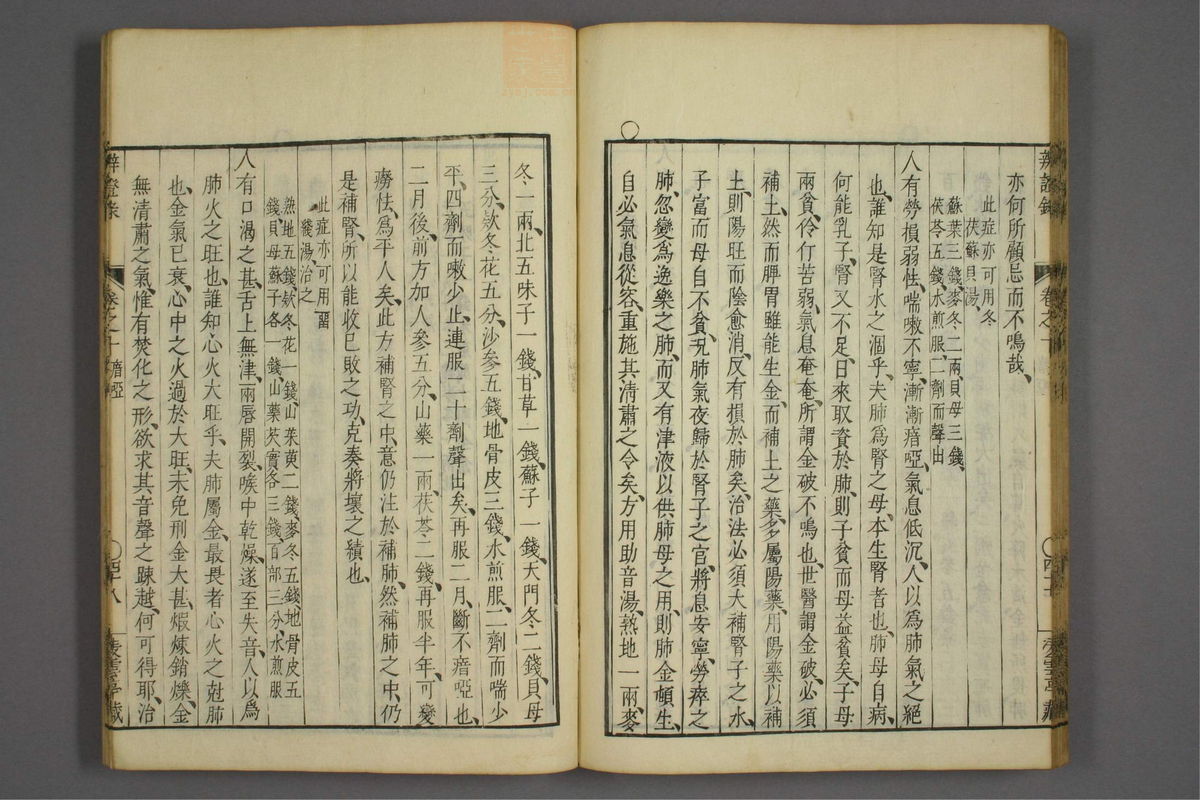 亦何所顧忌而不鳴哉、
此症亦可用冬
茯蘇貝湯、
蘇葉三錢、麥冬二兩貝母三錢、
茯苓五錢、水煎服二劑而聲出
人有勞損弱怯喘嗽不寧、漸漸瘖啞、氣息低沉、人以爲肺氣之絕
也、誰知是腎水之涸乎、夫肺爲腎之母、本生腎者也、肺母自病、
何能乳子、腎又不足、日來取資於肺、則子貧而母益貧矣、子母
兩貧、伶仃苦弱、氣息奄奄、所謂金破不鳴也、世醫謂金破、必須
補土、然而脾胃雖能生金、而補土之藥、多屬陽藥、用陽藥以補
土、則陽旺而陰愈消、反有損於肺矣、治法必須大補腎子之水、
子富而母自不貧、况肺氣夜歸於腎子之宫、將息安寧、勞瘁之
肺、忽變爲逸樂之肺、而又有津液以供肺母之用、則肺金頓生、
自必氣息從容、重施其淸肅之令矣、方用助音湯、熟地一兩、麥
冬一兩、北五味子一錢、甘草一錢、蘇子一錢、天門冬二錢、貝母
三分、欵冬花五分、沙參五錢、地骨皮三錢、水煎服、二劑而喘少
平、四劑而嗽少止、連服二十劑聲出矣、再服二月、斷不瘖啞也、
二月後、前方加人參五分、山藥一兩、茯苓二錢、再服半年、可變
癆怯、爲平人矣、此方補腎之中、意仍注於補肺、然補肺之中、仍
是補腎、所以能收已敗之功、克奏將壞之績也、
此症亦可用留
熟地五錢、欵冬花一錢、山茱萸二錢、麥冬五錢、地骨皮五
錢、貝母蘇子各一錢、山藥芡實各三錢、百部三分、水煎服
人有口渴之甚、舌上無津、兩唇開裂、喉中乾燥、遂至失音、人以爲
肺火之旺也、誰知心火大旺乎、夫肺屬金、最畏者心火之尅肺
也、金氣已衰、心中之火過於大旺、未免刑金太甚、煅煉銷爍、金
無淸肅之氣、惟有焚化之形、欲求其音聲之疎越、何可得耶、治